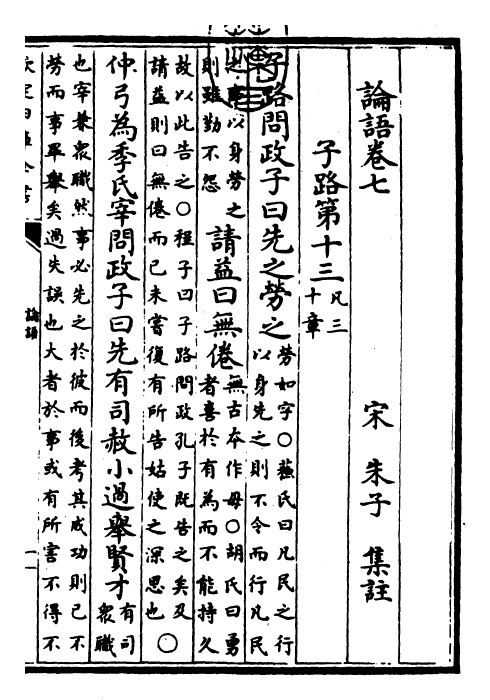 論語卷七 宋 朱子 集註
子路第十三
凡三
十章
子路問政子曰先之勞之
勞如字○蘇氏曰凡民之行
以身先之則不令而行凡民
之事以身勞之
則雖勤不怨
請益曰無倦
無古本作毋○胡氏曰勇
者喜於有為而不能持久
故以此告之○程子曰子路問政孔子既告之矣及
請益則曰無倦而已未嘗復有所告姑使之深思也○
仲弓為季氏宰問政子曰先有司赦小過舉賢才
有司
衆職
也宰兼衆職然事必先之於彼而後考其成功則已不
勞而事畢舉矣過失誤也大者於事或有所害不得不
論語